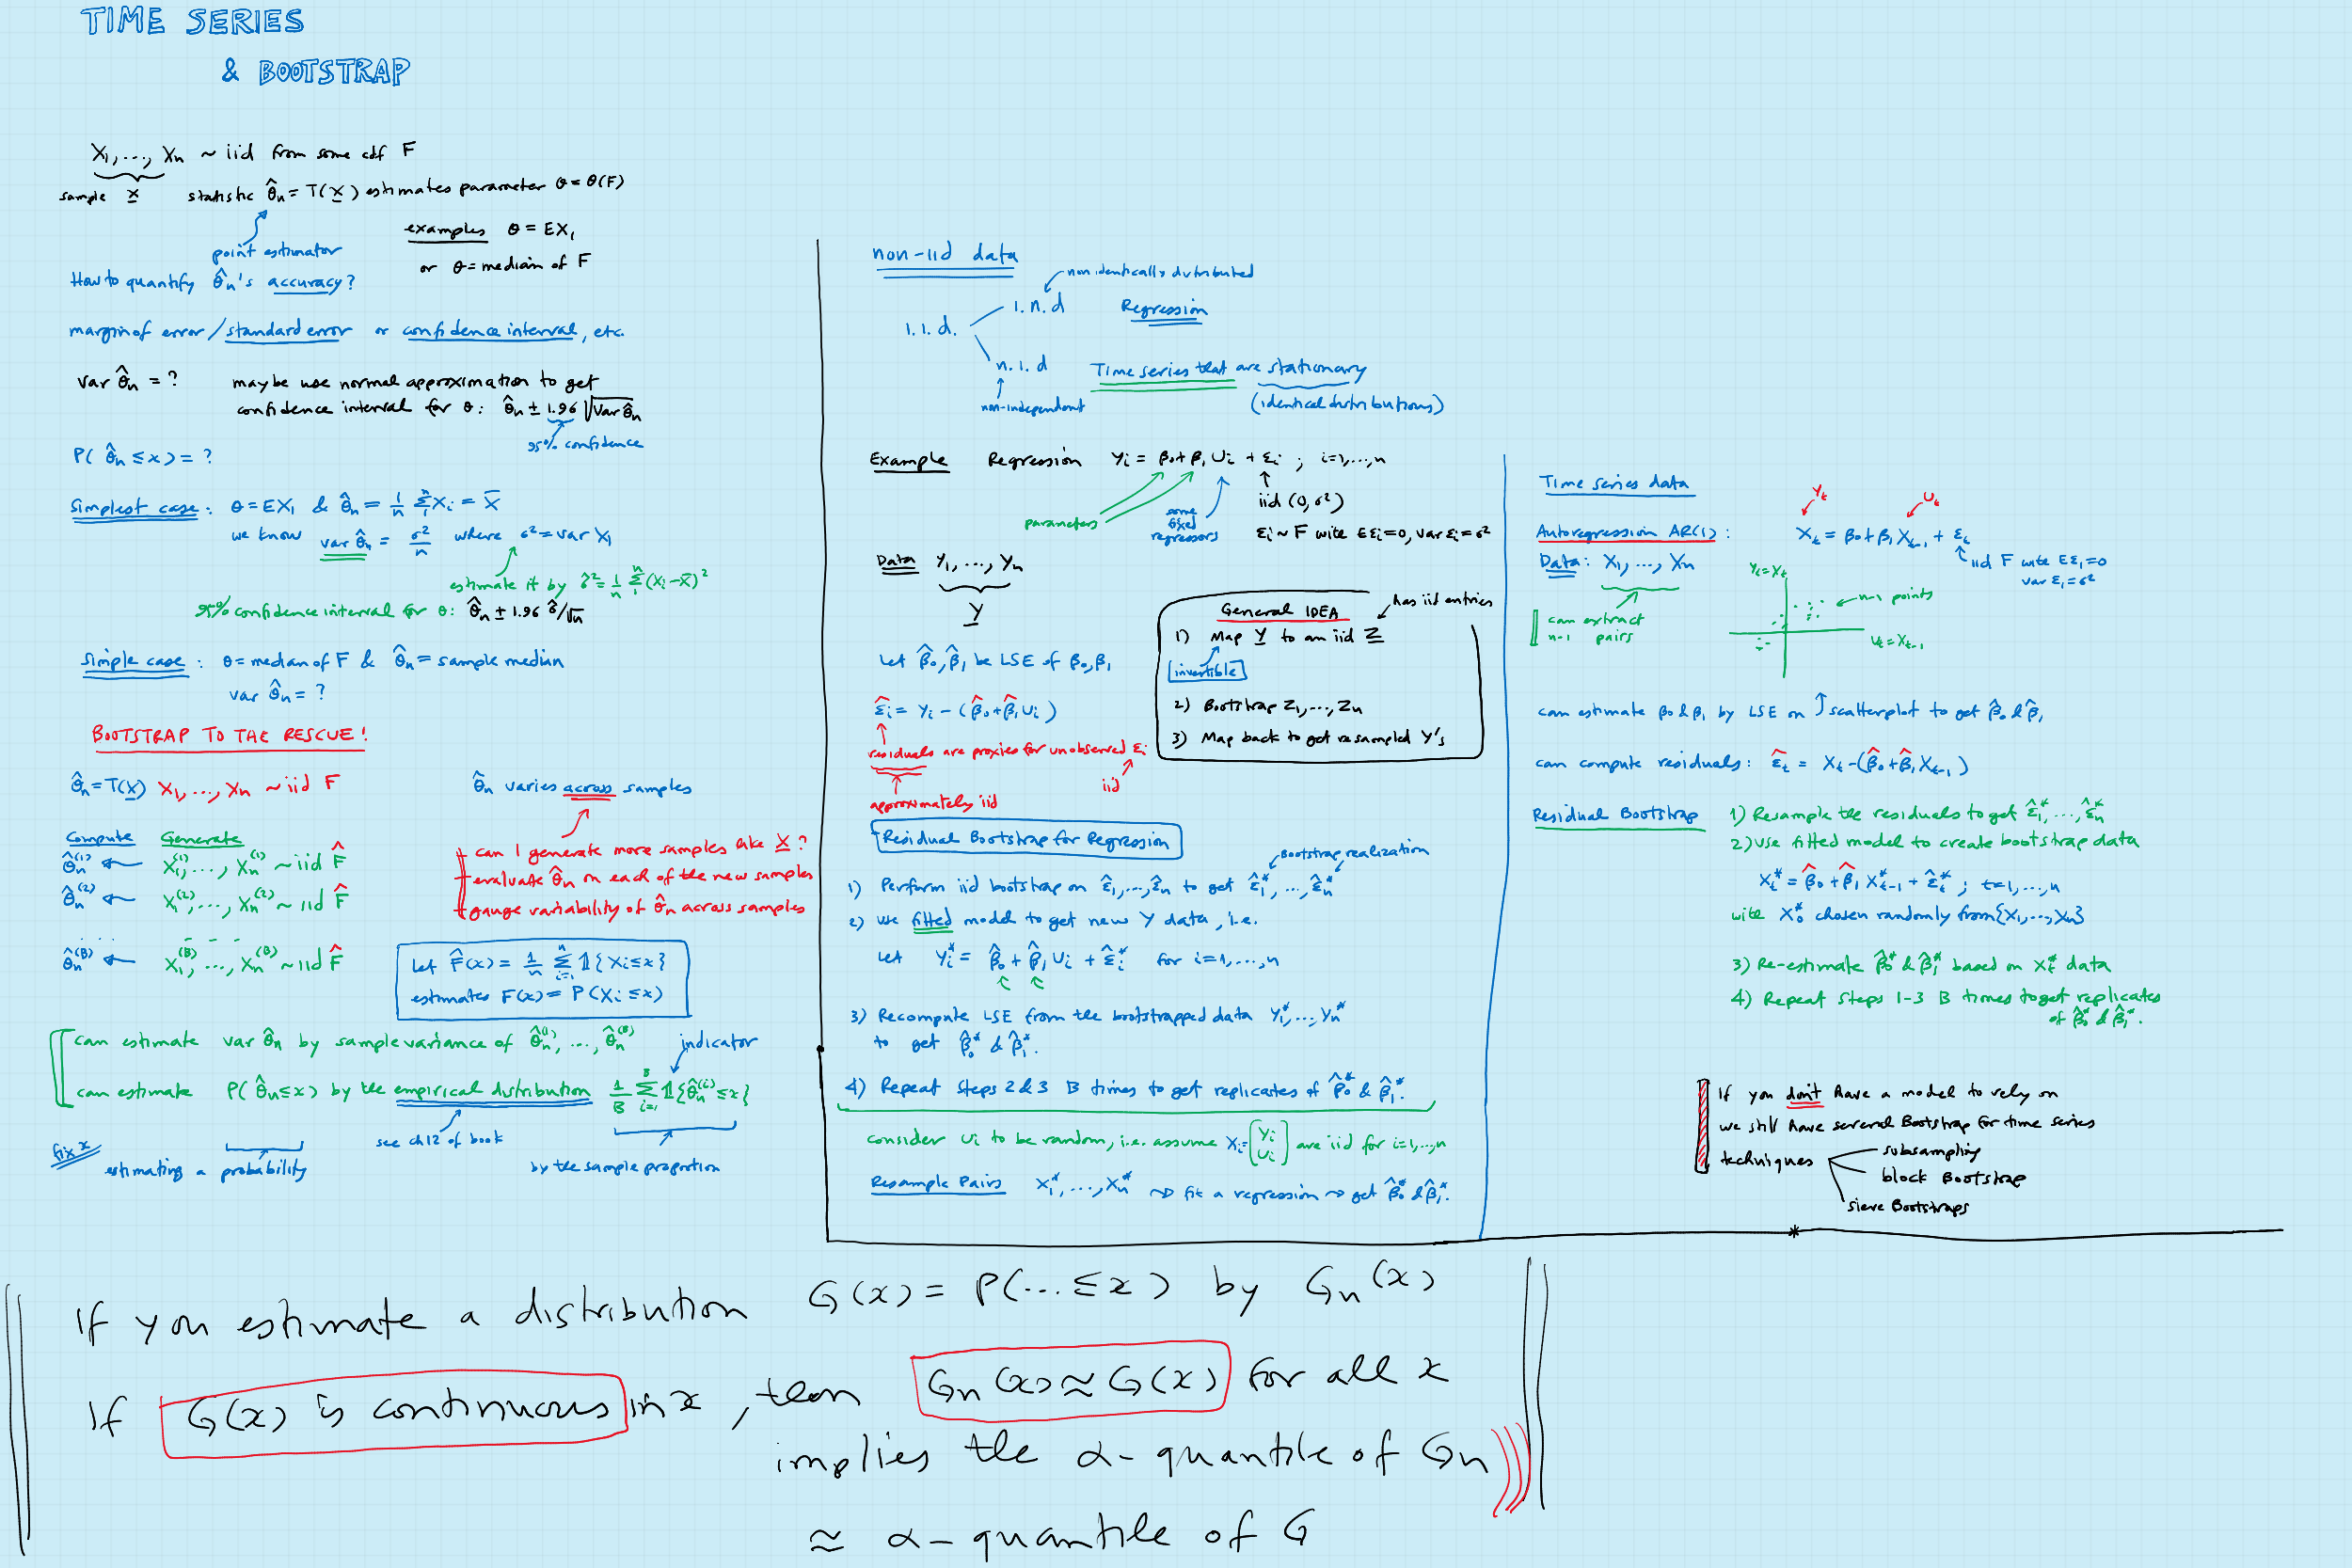 TIME SERIES
& BOOTSTRAP
X₁, ..., Xₙ ~ iid from some cdf F
sample X̲   statistic θ̂ₙ = T(X̲) estimates parameter θ = θ(F)
point estimator
examples θ = EX₁
or θ = median of F
How to quantify θ̂ₙ's accuracy?
margin of error / standard error or confidence interval, etc.
var θ̂ₙ = ?   maybe use normal approximation to get
confidence interval for θ: θ̂ₙ ± 1.96 √Var θ̂ₙ
95% confidence
P(θ̂ₙ ≤ x) = ?
Simplest case: θ = EX₁ & θ̂ₙ = 1/n Σ₁ⁿ Xᵢ = X̄
we know var θ̂ₙ = σ²/n where σ² = var X₁
estimate it by σ̂² = 1/n Σ₁ⁿ (Xᵢ - X̄)²
95% confidence interval for θ: θ̂ₙ ± 1.96 σ̂/√n
Simple case: θ = median of F & θ̂ₙ = sample median
var θ̂ₙ = ?
BOOTSTRAP TO THE RESCUE!
θ̂ₙ = T(X̲) X₁, ..., Xₙ ~ iid F
θ̂ₙ varies across samples
Compute Generate
θ̂ₙ⁽¹⁾ ← X₁⁽¹⁾, ..., Xₙ⁽¹⁾ ~ iid F̂
θ̂ₙ⁽²⁾ ← X₁⁽²⁾, ..., Xₙ⁽²⁾ ~ iid F̂
θ̂ₙ⁽ᴮ⁾ ← X₁⁽ᴮ⁾, ..., Xₙ⁽ᴮ⁾ ~ iid F̂
can I generate more samples like X̲ ?
evaluate θ̂ₙ on each of the new samples
gauge variability of θ̂ₙ across samples
Let F̂(x) = 1/n Σᵢ₌₁ⁿ 𝟙{Xᵢ ≤ x}
estimates F(x) = P(Xᵢ ≤ x)
can estimate var θ̂ₙ by sample variance of θ̂ₙ⁽¹⁾, ..., θ̂ₙ⁽ᴮ⁾
indicator
can estimate P(θ̂ₙ ≤ x) by the empirical distribution 1/B Σᵢ₌₁ᴮ 𝟙{θ̂ₙ⁽ⁱ⁾ ≤ x}
fix x
estimating a probability
see ch 12 of book
by the sample proportion
non-iid data
non identically distributed
i.i.d.
i.n.d Regression
n.i.d Time series that are stationary
non-independent
(identical distributions)
Example Regression Yᵢ = β₀ + β₁ Uᵢ + εᵢ ; i=1,...,n
parameters
some fixed regressors
iid (0, σ²)
εᵢ ~ F with Eεᵢ = 0, var εᵢ = σ²
Data Y₁, ..., Yₙ
Y̲
Let β̂₀, β̂₁ be LSE of β₀, β₁
ε̂ᵢ = Yᵢ - (β̂₀ + β̂₁ Uᵢ)
residuals are proxies for unobserved εᵢ
approximately iid
iid
General IDEA
has iid entries
1) Map Y̲ to an iid Z̲
invertible
2) Bootstrap Z₁, ..., Zₙ
3) Map back to get resampled Y's
Residual Bootstrap for Regression
Bootstrap realization
1) Perform iid bootstrap on ε̂₁, ..., ε̂ₙ to get ε̂₁*, ..., ε̂ₙ*
2) Use fitted model to get new Y data, i.e.
let Yᵢ* = β̂₀ + β̂₁ Uᵢ + ε̂ᵢ* for i=1,...,n
3) Recompute LSE from the bootstrapped data Y₁*, ..., Yₙ*
to get β̂₀* & β̂₁*.
4) Repeat Steps 2 & 3 B times to get replicates of β̂₀* & β̂₁*.
consider Uᵢ to be random, i.e. assume Xᵢ = [Yᵢ Uᵢ] are iid for i=1,...,n
Resample Pairs X₁*, ..., Xₙ* ⇝ fit a regression ⇝ get β̂₀* & β̂₁*.
Time series data
Yₜ Uₜ
Autoregression AR(1): Xₜ = β₀ + β₁ Xₜ₋₁ + εₜ
iid F with Eε₁ = 0
var ε₁ = σ²
Data: X₁, ..., Xₙ
can extract
n-1 pairs
Yₜ = Xₜ
n-1 points
Uₜ = Xₜ₋₁
can estimate β₀ & β₁ by LSE on ↑ scatterplot to get β̂₀ & β̂₁
can compute residuals: ε̂ₜ = Xₜ - (β̂₀ + β̂₁ Xₜ₋₁)
Residual Bootstrap 1) Resample the residuals to get ε̂₁*, ..., ε̂ₙ*
2) Use fitted model to create bootstrap data
Xₜ* = β̂₀ + β̂₁ Xₜ₋₁* + ε̂ₜ* ; t=1,...,n
with X₀* chosen randomly from {X₁, ..., Xₙ}
3) Re-estimate β̂₀* & β̂₁* based on Xₜ* data
4) Repeat Steps 1-3 B times to get replicates
of β̂₀* & β̂₁*.
If you don't have a model to rely on
we still have several Bootstrap for time series
techniques
subsampling
block Bootstrap
sieve Bootstraps
If you estimate a distribution G(x) = P(... ≤ x) by Gₙ(x)
If G(x) is continuous in x, then Gₙ(x) ≈ G(x) for all x
implies the α-quantile of Gₙ
≈ α-quantile of G